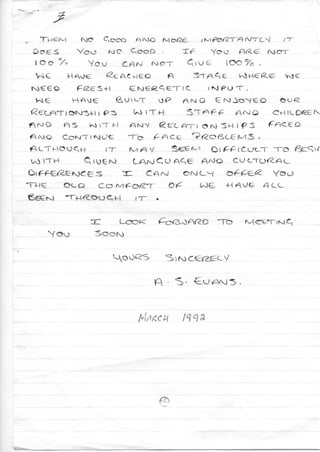 THEM NO GOOD AND MORE IMPORTANTLY IT
DOES YOU NO GOOD. IF YOU ARE NOT
100% YOU CAN NOT GIVE 100%.
WE HAVE REACHED A STAGE WHERE WE
NEED FRESH ENERGETIC INPUT.
WE HAVE BUILT UP AND ENJOYED OUR
RELATIONSHIPS WITH STAFF AND CHILDREN
AND AS WITH ANY RELATIONSHIPS FACED
AND CONTINUE TO FACE PROBLEMS.
ALTHOUGH IT MAY SEEM DIFFICULT TO BEGIN
WITH GIVEN LANGUAGE AND CULTURAL
DIFFERENCES I CAN ONLY OFFER YOU
THE OLD COMFORT OF WE HAVE ALL
BEEN THROUGH IT.
I LOOK FORWARD TO MEETING
YOU SOON
YOURS SINCERELY
A. S. EVANS.
MARCH 1992